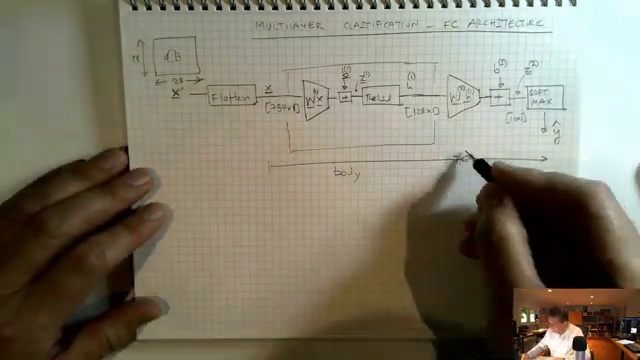 MULTILAYER CLASSIFICATION - FC ARCHITECTURE
28
28
x
Flatten
x
[784x1]
W(1) x
b(1)
+
z(1)
ReLU
h(1)
[128x1]
W(2) h(1)
b(2)
+
z(2)
SOFT
MAX
ŷ
body